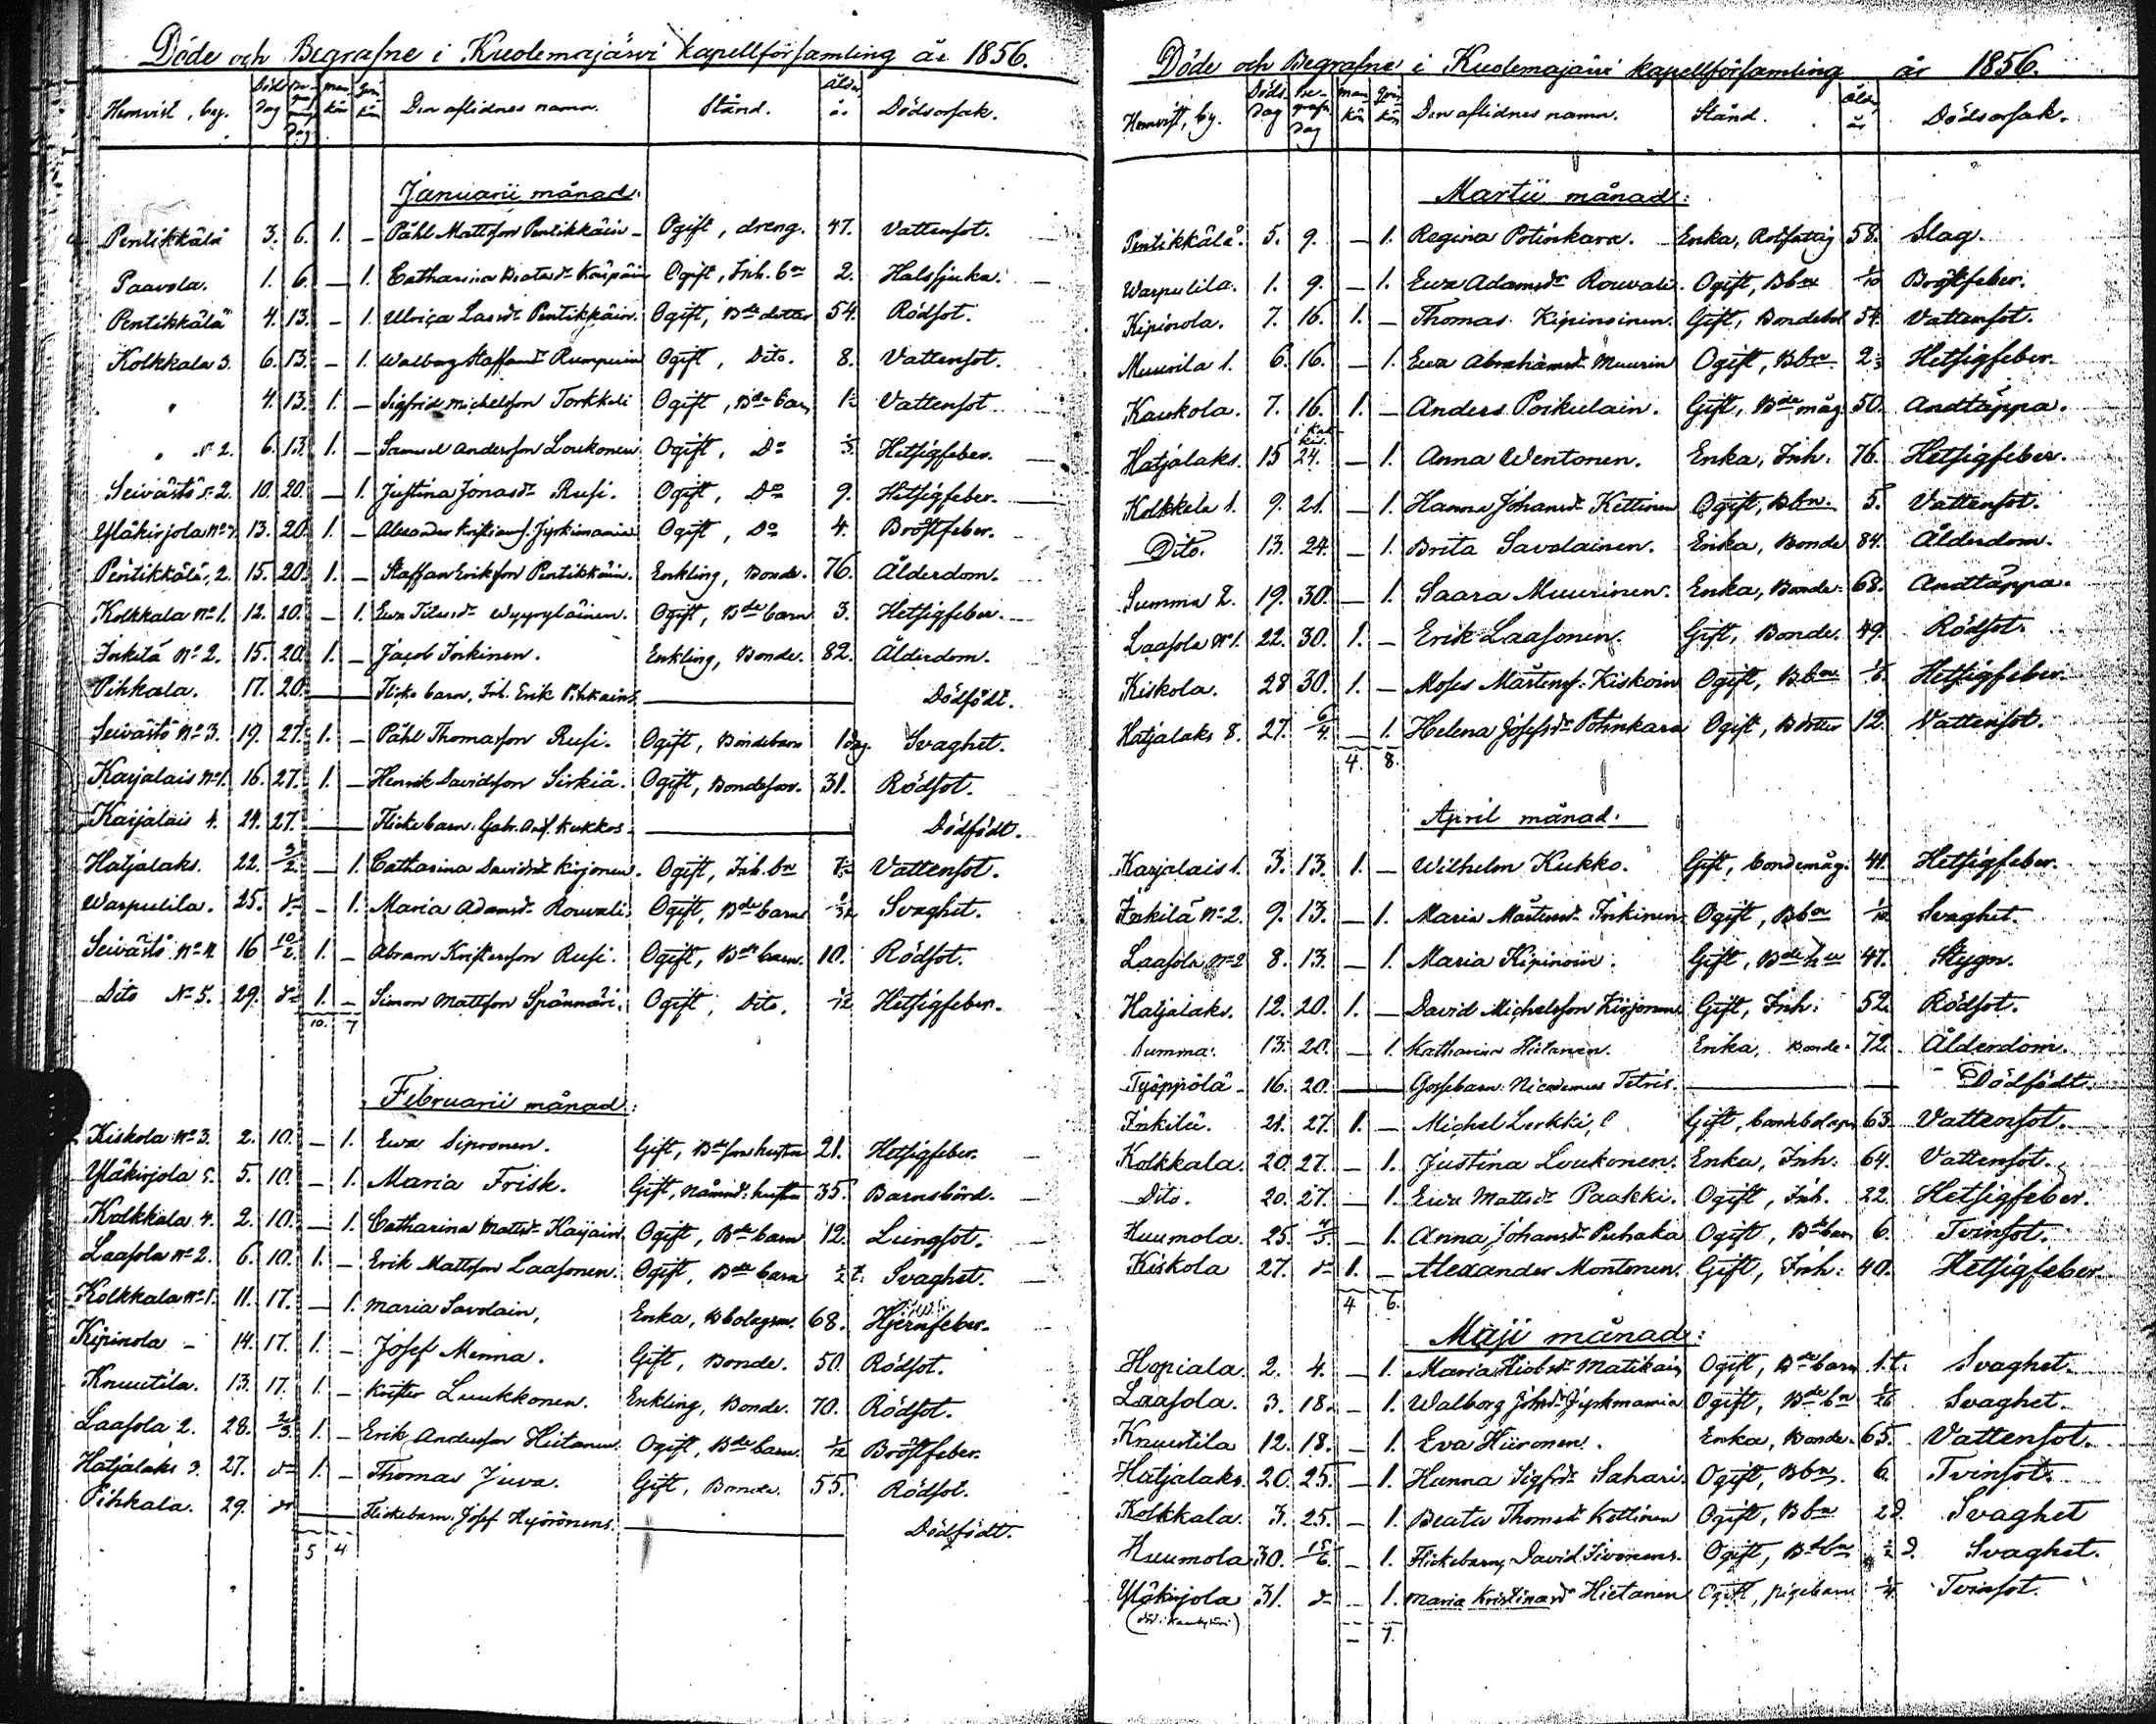 Döde och Begrafne i Kuolemajärvi kapellförsamling år 1856.
Hemvist, by. Döds dag Be-grafnings Dag man kön qvin kön Den aflidnes namn. Stånd. Ålder år Dödsorsak.
Januarii månad:
Pentikkälä 3. 6. 1. – Påhl Mattsson Pentikkäin Ogift, dreng. 47. Vattensot.
Paavola. 1. 6. – 1. Catharina Ogift, Inh. bn 2. Halssjuka.
Pentikkälä 4. 13. – 1. Ulrica Larsdr Pentikkäin. Ogift, Bde dotter 54. Rödsot.
Kolkkala 3. 6. 13. – 1. Walborg Staffansdr Rumpuin Ogift, Dito. 8. Vattensot.
" 4. 13. 1. – Sigfrid Michelsson Torkkeli Ogift, Bde barn Vattensot
" No 2. 6. 13. 1. – Samuel Andersson Loukonen Ogift, Do Hetsigfeber.
Seivästö No 2. 10. 20. – 1. Justina Jonasdr Rusi. Ogift, Do 9. Hetsigfeber.
Yläkirjola No 13. 20. 1. – Alexander Jyrkimainen Ogift, Do 4. Bröstfeber.
Pentikkälä, 2. 15. 20. 1. – Staffan Eriksson Pentikkäin. Enkling, Bonde. 76. Ålderdom.
Kolkkala No 1. 12. 20. – 1. Eva Wyyryläinen. Ogift, Bde barn 3. Hetsigfeber.
Inkilä No 2. 15. 20. 1. – Jacob Inkinen. Enkling, Bonde. 82. Ålderdom.
Pihkala. 17. 20. Flicke barn, Inh. Erik Pihkains Dödfödt.
Seivästö No 3. 19. 27. 1. – Påhl Thomasson Rusi. Ogift, Bondebarn 1 dag. Svaghet.
Karjalais No 1. 16. 27. 1. – Henrik Davidsson Sirkiä. Ogift, Bondeson. 31. Rödsot.
Karjalais 4. 24. 27. Flicke barn: Gabr. And. Kukkos Dödfödt.
Hatjalaks. 22. 3/2. – 1. Catharina Davidsdr Kirjonen. Ogift, Inh. bn Vattensot.
Warpulila. 25. do – 1. Maria Adamsdr Rouvali Ogift, Bde barn Svaghet.
Seivästö No 4 16 10/2. 1. – Abram Kristersson Rusi. Ogift, Bde barn. 10. Rödsot.
Dito No 5. 29. do 1. – Simon Mattsson Spännäri. Ogift, Dito. 1/12 Hetsigfeber.
10. 7
Februarii månad:
Kiskola No 3. 2. 10. – 1. Eva Siponen. Gift, Bde sons hustru 21. Hetsigfeber.
Yläkirjola 5. 5. 10. – 1. Maria Frisk. Gift, Nämnd: hustru 35. Barnsbörd.
Kolkkala 4. 2. 10. – 1. Catharina Mattsdr Kaijain Ogift, Bde barn 12. Lungsot.
Laasola No 2. 6. 10. 1. – Erik Mattsson Laasonen. Ogift, Bde barn 1/2 t. Svaghet.
Kolkkala No 1. 11. 17. – 1. Maria Savolain, Enka, Bbolagsm. 68. Hjernfeber.
Kipinola – 14. 17. 1. – Josef Menna. Gift, Bonde. 50. Rödsot.
Knuutila. 13. 17. 1. – Krister Luukkonen. Enkling, Bonde. 70. Rödsot.
Laasola 2. 28. 2/3. 1. – Erik Andersson Hietanen. Ogift, Bde barn. 1/12 Bröstfeber.
Hatjalaks 3. 27. do 1. – Thomas Juva. Gift, Bonde. 55. Rödsot.
Pihkala. 29. do Flickebarn, Josef Hyörönens. Dödfödt.
5 4
Döde och Begrafne i Kuolemajärvi kapellförsamling år 1856.
Hemvist, by. Döds. dag Be-grafn. Dag man kön qvin kön Den aflidnes namn. Stånd. Ålder år Dödsorsak.
Martii månad:
Pentikkälä. 5. 9. – 1. Regina Potinkara. Enka, Rotfattig 58. Slag.
Warpulila. 1. 9. – 1. Eva Adamsdr Rouvali. Ogift, Bbn 1/10 Bröstfeber.
Kipinola. 7. 16. 1. – Thomas Kipinoinen. Gift, Bondebol 54. Vattensot.
Muurila 1. 6. 16. – 1. Eva Abrahamsdr Muurin Ogift, Bbn Hetsigfeber.
Kaukola. 7. 16. 1. – Anders Poikelain. Gift, Bde måg. 50. Andtäppa.
Hatjalaks. 15 24. – 1. Anna Wentonen. Enka, Inh. 76. Hetsigfeber.
Kolkkala 1. 9. 21. – 1. Hanna Johansdr Kettinen Ogift, Bbn. 5. Vattensot.
Dito. 13. 24. – 1. Brita Savolainen. Enka, Bonde 84. Ålderdom.
Summa 2. 19. 30. – 1. Saara Muurinen. Enka, Bonde. 68. Andtäppa.
Laasola No 1. 22. 30. 1. – Erik Laasonen. Gift, Bonde. 49. Rödsot.
Kiskola. 28 30. 1. – Moses Mårtenss. Kiskoin Ogift, Bbn Hetsigfeber.
Hatjalaks 8. 27. 6/4. – 1. Helena Josefsdr Potinkara Ogift, Bdotter 12. Vattensot.
4. 8.
April månad.
Karjalais 1. 3. 13. 1. – Wilhelm Kukko. Gift, bondemåg. 41. Hetsigfeber.
Inkilä No 2. 9. 13. – 1. Maria Mårtensdr Inkinen Ogift, Bbn Svaghet.
Laasola No 2 8. 13. – 1. Maria Kipinoin. Gift, Bde hu 47. Stygn.
Hatjalaks. 12. 20. 1. – David Michelsson Kirjonen Gift, Inh: 52. Rödsot.
Summa. 13. 20. – 1. Katharina Hietanen. Enka, Bonde. 72. Ålderdom.
Työppölä 16. 20. Gossebarn. Nicodemus Tetris. Dödfödt.
Inkilä. 21. 27. 1. – Michel Lerkki, Gift, 63. Vattensot.
Kolkkala. 20. 27. – 1. Justina Loukonen. Enka, Inh. 64. Vattensot.
Dito. 20. 27. – 1. Eva Mattsdr Paakki. Ogift, Inh. 22. Hetsigfeber.
Huumola. 25. 4/5. – 1. Anna Johansdr Puhaka Ogift, Bde barn 6. Tvinsot.
Kiskola 27. do 1. – Alexander Montonen. Gift, Inh: 40. Hetsigfeber
4 6.
Maji månad:
Hopiala. 2. 4. – 1. Maria Matikain Ogift, Bde barn 1 t. Svaghet.
Laasola. 3. 18. – 1. Walborg Johsdr Jyrkmania Ogift, Bde bn Svaghet.
Knuutila 12. 18. – 1. Eva Hiironen. Enka, Bonde. 65. Vattensot.
Hatjalaks. 20. 25. – 1. Hanna Sigfrdr Sahari. Ogift, Bbn. 6. Tvinsot.
Kolkkala. 3. 25. – 1. Beata Thomsdr Kettinen Ogift, Bbn 2 d. Svaghet
Huumola 30. 15/6. – 1. Flickebarn, David Sivonens. Ogift, Bdebn 1/2 d. Svaghet.
Yläkirjola 31. do – 1. Maria Kristinasdr Hietanen Ogift, pigebarn 1/4. Tvinsot.
– 7.